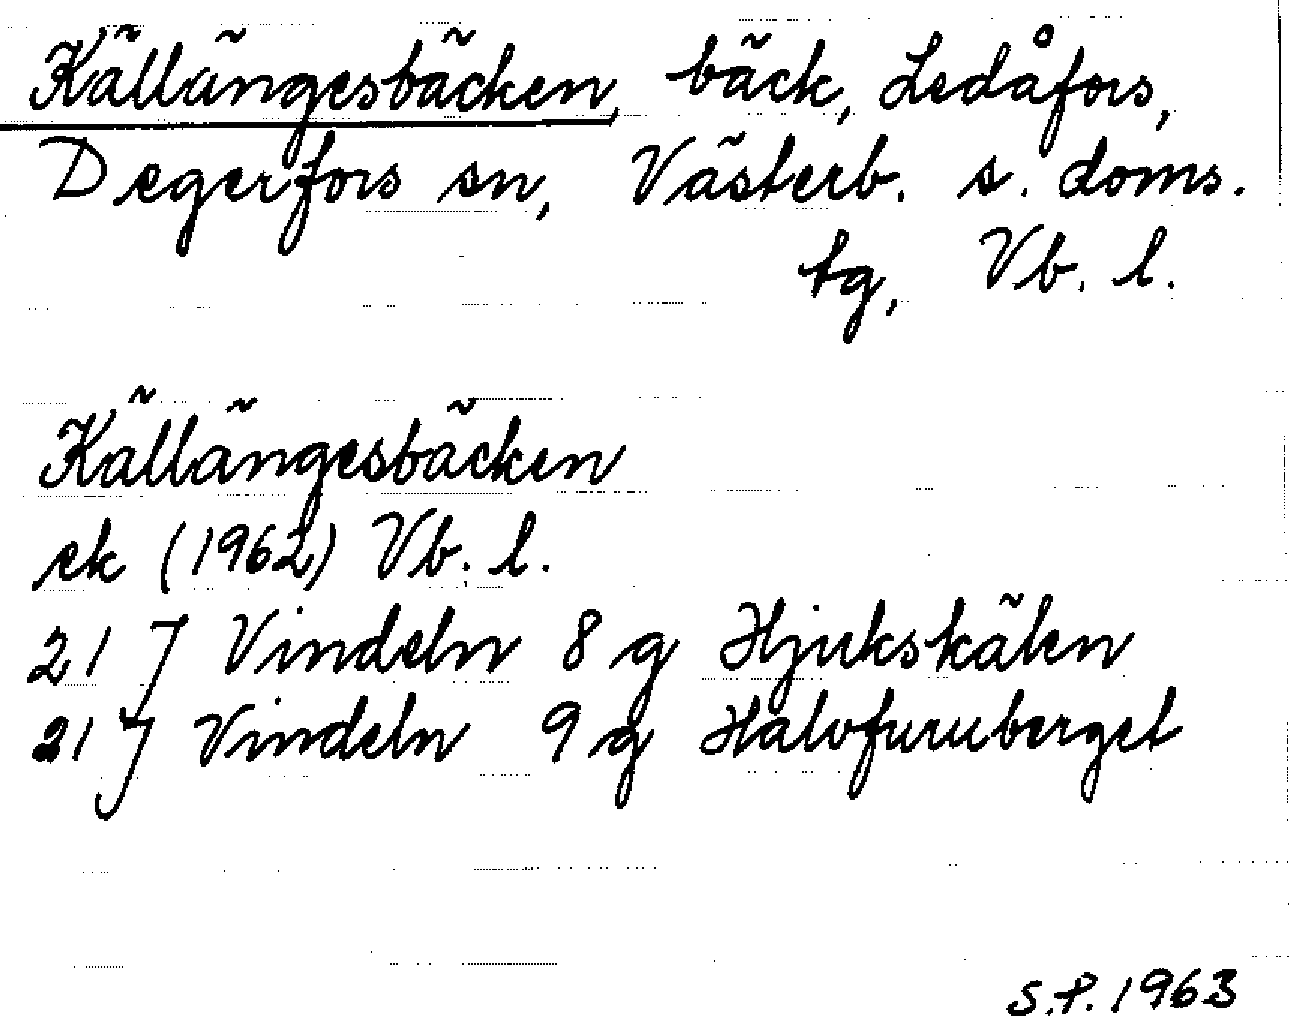 Källängesbäcken, bäck, Ledåfors,
Degerfors sn, Västerb. s. doms.
tg, Vb. l.
Källängesbäcken
ek (1962) Vb. l.
21 J Vindeln 8 g Hjukskälen
21 J Vindeln 9 g Halvfuruberget
S.P. 1963